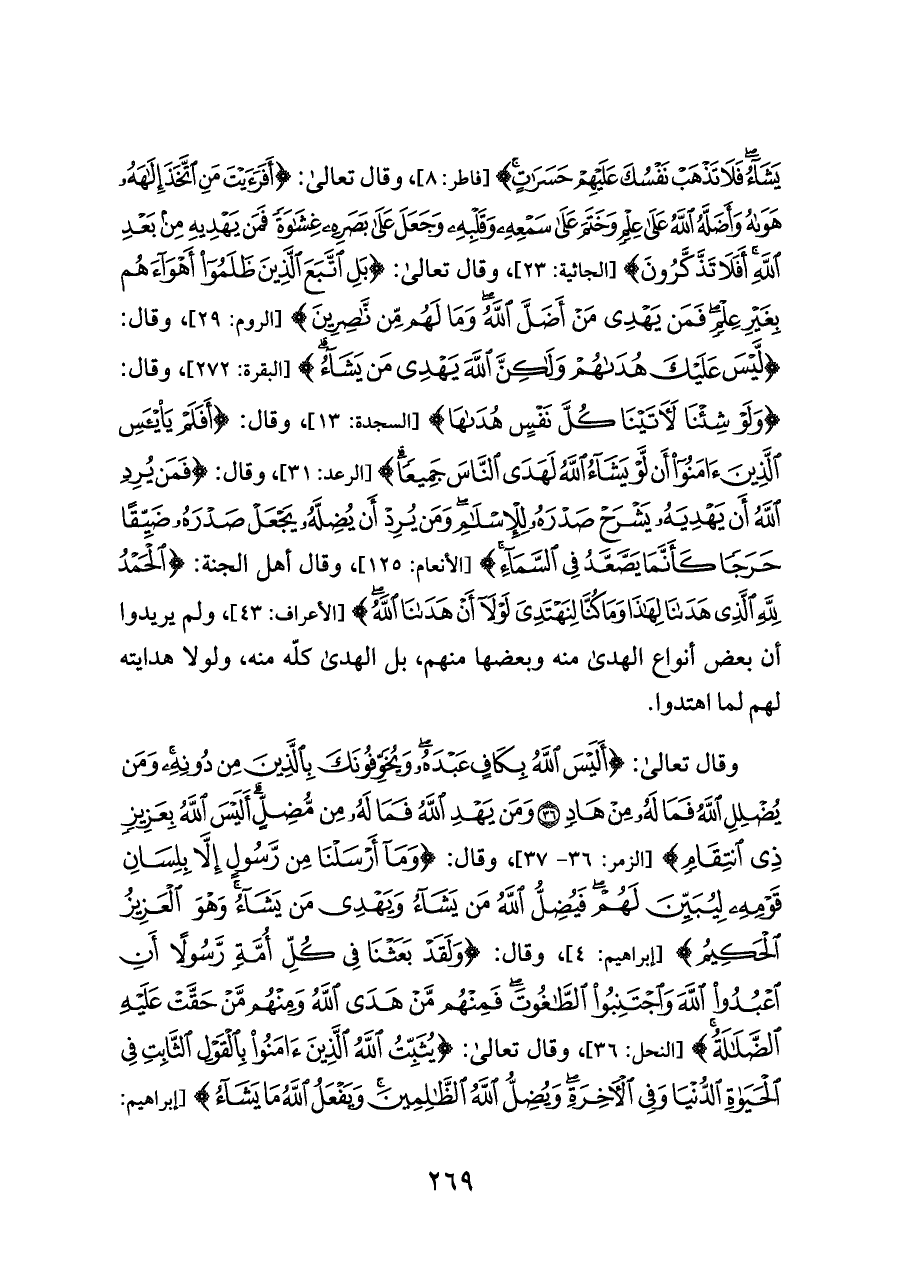 يَشَآءُۖ فَلَا تَذْهَبْ نَفْسُكَ عَلَيْهِمْ حَسَرَٰتٍۚ﴾ [فاطر: ٨]، وقال تعالىٰ: ﴿أَفَرَءَيْتَ مَنِ ٱتَّخَذَ إِلَٰهَهُۥ
هَوَىٰهُ وَأَضَلَّهُ ٱللَّهُ عَلَىٰ عِلْمٍ وَخَتَمَ عَلَىٰ سَمْعِهِۦ وَقَلْبِهِۦ وَجَعَلَ عَلَىٰ بَصَرِهِۦ غِشَٰوَةً فَمَن يَهْدِيهِ مِنۢ بَعْدِ
ٱللَّهِۚ أَفَلَا تَذَكَّرُونَ﴾ [الجاثية: ٢٣]، وقال تعالىٰ: ﴿بَلِ ٱتَّبَعَ ٱلَّذِينَ ظَلَمُوٓا۟ أَهْوَآءَهُم
بِغَيْرِ عِلْمٍۖ فَمَن يَهْدِى مَنْ أَضَلَّ ٱللَّهُۖ وَمَا لَهُم مِّن نَّٰصِرِينَ﴾ [الروم: ٢٩]، وقال:
﴿لَّيْسَ عَلَيْكَ هُدَىٰهُمْ وَلَٰكِنَّ ٱللَّهَ يَهْدِى مَن يَشَآءُۗ﴾ [البقرة: ٢٧٢]، وقال:
﴿وَلَوْ شِئْنَا لَءَاتَيْنَا كُلَّ نَفْسٍ هُدَىٰهَا﴾ [السجدة: ١٣]، وقال: ﴿أَفَلَمْ يَا۟يْـَٔسِ
ٱلَّذِينَ ءَامَنُوٓا۟ أَن لَّوْ يَشَآءُ ٱللَّهُ لَهَدَى ٱلنَّاسَ جَمِيعًاۗ﴾ [الرعد: ٣١]، وقال: ﴿فَمَن يُرِدِ
ٱللَّهُ أَن يَهْدِيَهُۥ يَشْرَحْ صَدْرَهُۥ لِلْإِسْلَٰمِۖ وَمَن يُرِدْ أَن يُضِلَّهُۥ يَجْعَلْ صَدْرَهُۥ ضَيِّقًا
حَرَجًا كَأَنَّمَا يَصَّعَّدُ فِى ٱلسَّمَآءِۚ﴾ [الأنعام: ١٢٥]، وقال أهل الجنة: ﴿ٱلْحَمْدُ
لِلَّهِ ٱلَّذِى هَدَىٰنَا لِهَٰذَا وَمَا كُنَّا لِنَهْتَدِىَ لَوْلَآ أَنْ هَدَىٰنَا ٱللَّهُۖ﴾ [الأعراف: ٤٣]، ولم يريدوا
أن بعض أنواع الهدىٰ منه وبعضها منهم، بل الهدىٰ كلّه منه، ولولا هدايته
لهم لما اهتدوا.
وقال تعالىٰ: ﴿أَلَيْسَ ٱللَّهُ بِكَافٍ عَبْدَهُۥۖ وَيُخَوِّفُونَكَ بِٱلَّذِينَ مِن دُونِهِۦۚ وَمَن
يُضْلِلِ ٱللَّهُ فَمَا لَهُۥ مِنْ هَادٍ ٣٦ وَمَن يَهْدِ ٱللَّهُ فَمَا لَهُۥ مِن مُّضِلٍّۗ أَلَيْسَ ٱللَّهُ بِعَزِيزٍ
ذِى ٱنتِقَامٍ﴾ [الزمر: ٣٦- ٣٧]، وقال: ﴿وَمَآ أَرْسَلْنَا مِن رَّسُولٍ إِلَّا بِلِسَانِ
قَوْمِهِۦ لِيُبَيِّنَ لَهُمْۖ فَيُضِلُّ ٱللَّهُ مَن يَشَآءُ وَيَهْدِى مَن يَشَآءُۚ وَهُوَ ٱلْعَزِيزُ
ٱلْحَكِيمُ﴾ [إبراهيم: ٤]، وقال: ﴿وَلَقَدْ بَعَثْنَا فِى كُلِّ أُمَّةٍ رَّسُولًا أَنِ
ٱعْبُدُوا۟ ٱللَّهَ وَٱجْتَنِبُوا۟ ٱلطَّٰغُوتَۖ فَمِنْهُم مَّنْ هَدَى ٱللَّهُ وَمِنْهُم مَّنْ حَقَّتْ عَلَيْهِ
ٱلضَّلَٰلَةُۚ﴾ [النحل: ٣٦]، وقال تعالىٰ: ﴿يُثَبِّتُ ٱللَّهُ ٱلَّذِينَ ءَامَنُوا۟ بِٱلْقَوْلِ ٱلثَّابِتِ فِى
ٱلْحَيَوٰةِ ٱلدُّنْيَا وَفِى ٱلْءَاخِرَةِۖ وَيُضِلُّ ٱللَّهُ ٱلظَّٰلِمِينَۚ وَيَفْعَلُ ٱللَّهُ مَا يَشَآءُ﴾ [إبراهيم:
٢٦٩